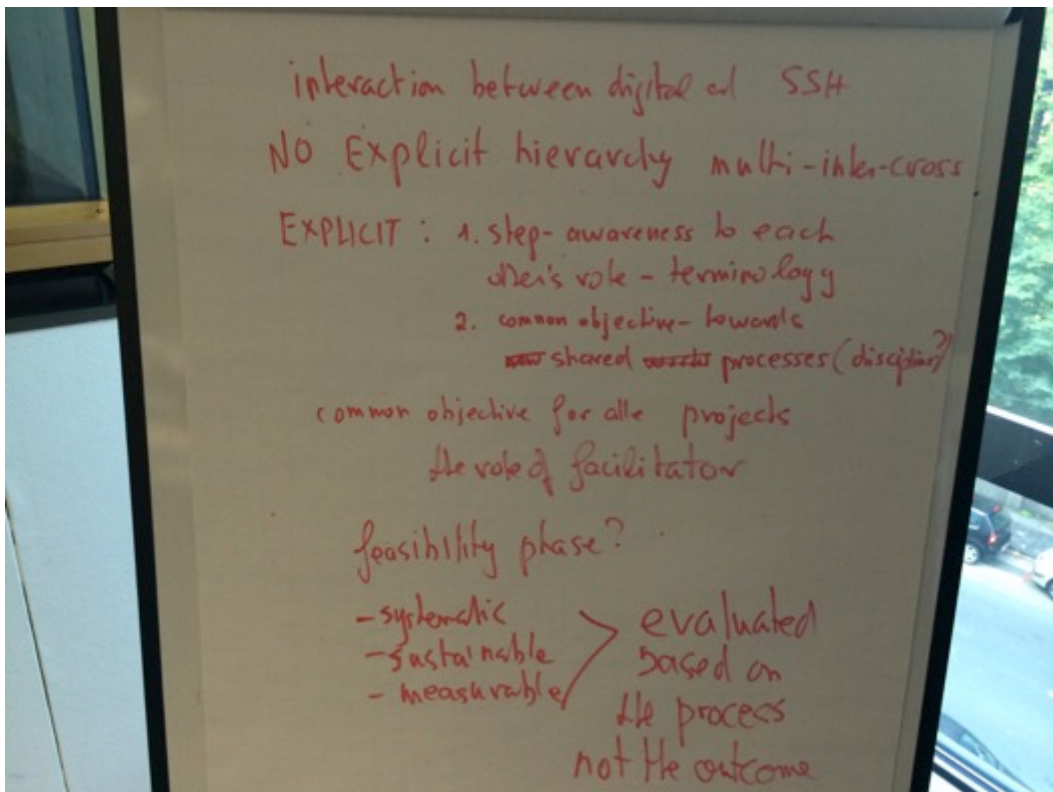 interaction between digital and SSH
NO Explicit hierarchy multi-inter-cross
EXPLICIT : 1. step- awareness to each
other's role - terminology
2. common objective- towards
shared processes (discipline?)
common objective for alle projects
the role of facilitator
feasibility phase?
- systematic
- sustainable
- measurable
evaluated
based on
the process
not the outcome